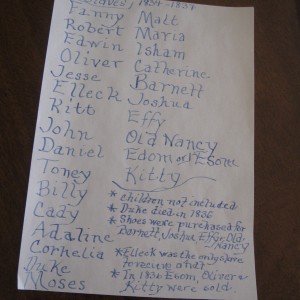 Slaves, 1834-1837
Fanny
Robert
Edwin
Oliver
Jesse
Elleck
Kitt
John
Daniel
Toney
Billy
Cady
Adaline
Cornelia
Duke
Moses
Matt
Maria
Isham
Catherine
Barnett
Joshua
Effy
Old Nancy
Edom or Esom
Kitty
* Children not included
* Duke died in 1836
* Shoes were purchased for
Barnett, Joshua, Effy, Old
Nancy
* Elleck was the only slave
to receive a hat
* In 1836 Esom, Oliver &
Kitty were sold.